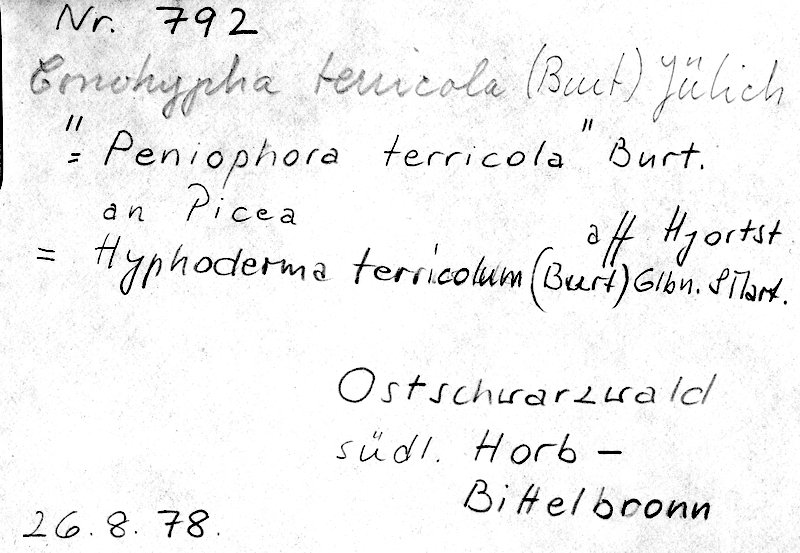 Nr. 792
Conohypha terricola (Burt) Jülich
"= Peniophora terricola" Burt.
an Picea
aff Hjortst
= Hyphoderma terricolum (Burt) Glbn. &Mart.
Ostschwarzwald
südl. Horb –
Bittelbronn
26.8.78.